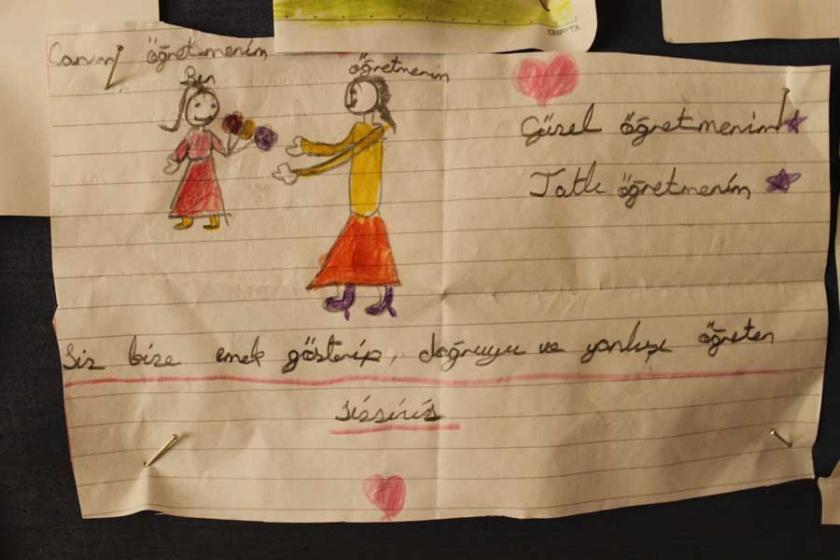 Canım öğretmenim
Ben
öğretmenim
Güzel öğretmenim
Tatlı öğretmenim
Siz bize emek gösterip, doğruyu ve yanlışı öğreten
sizsiniz